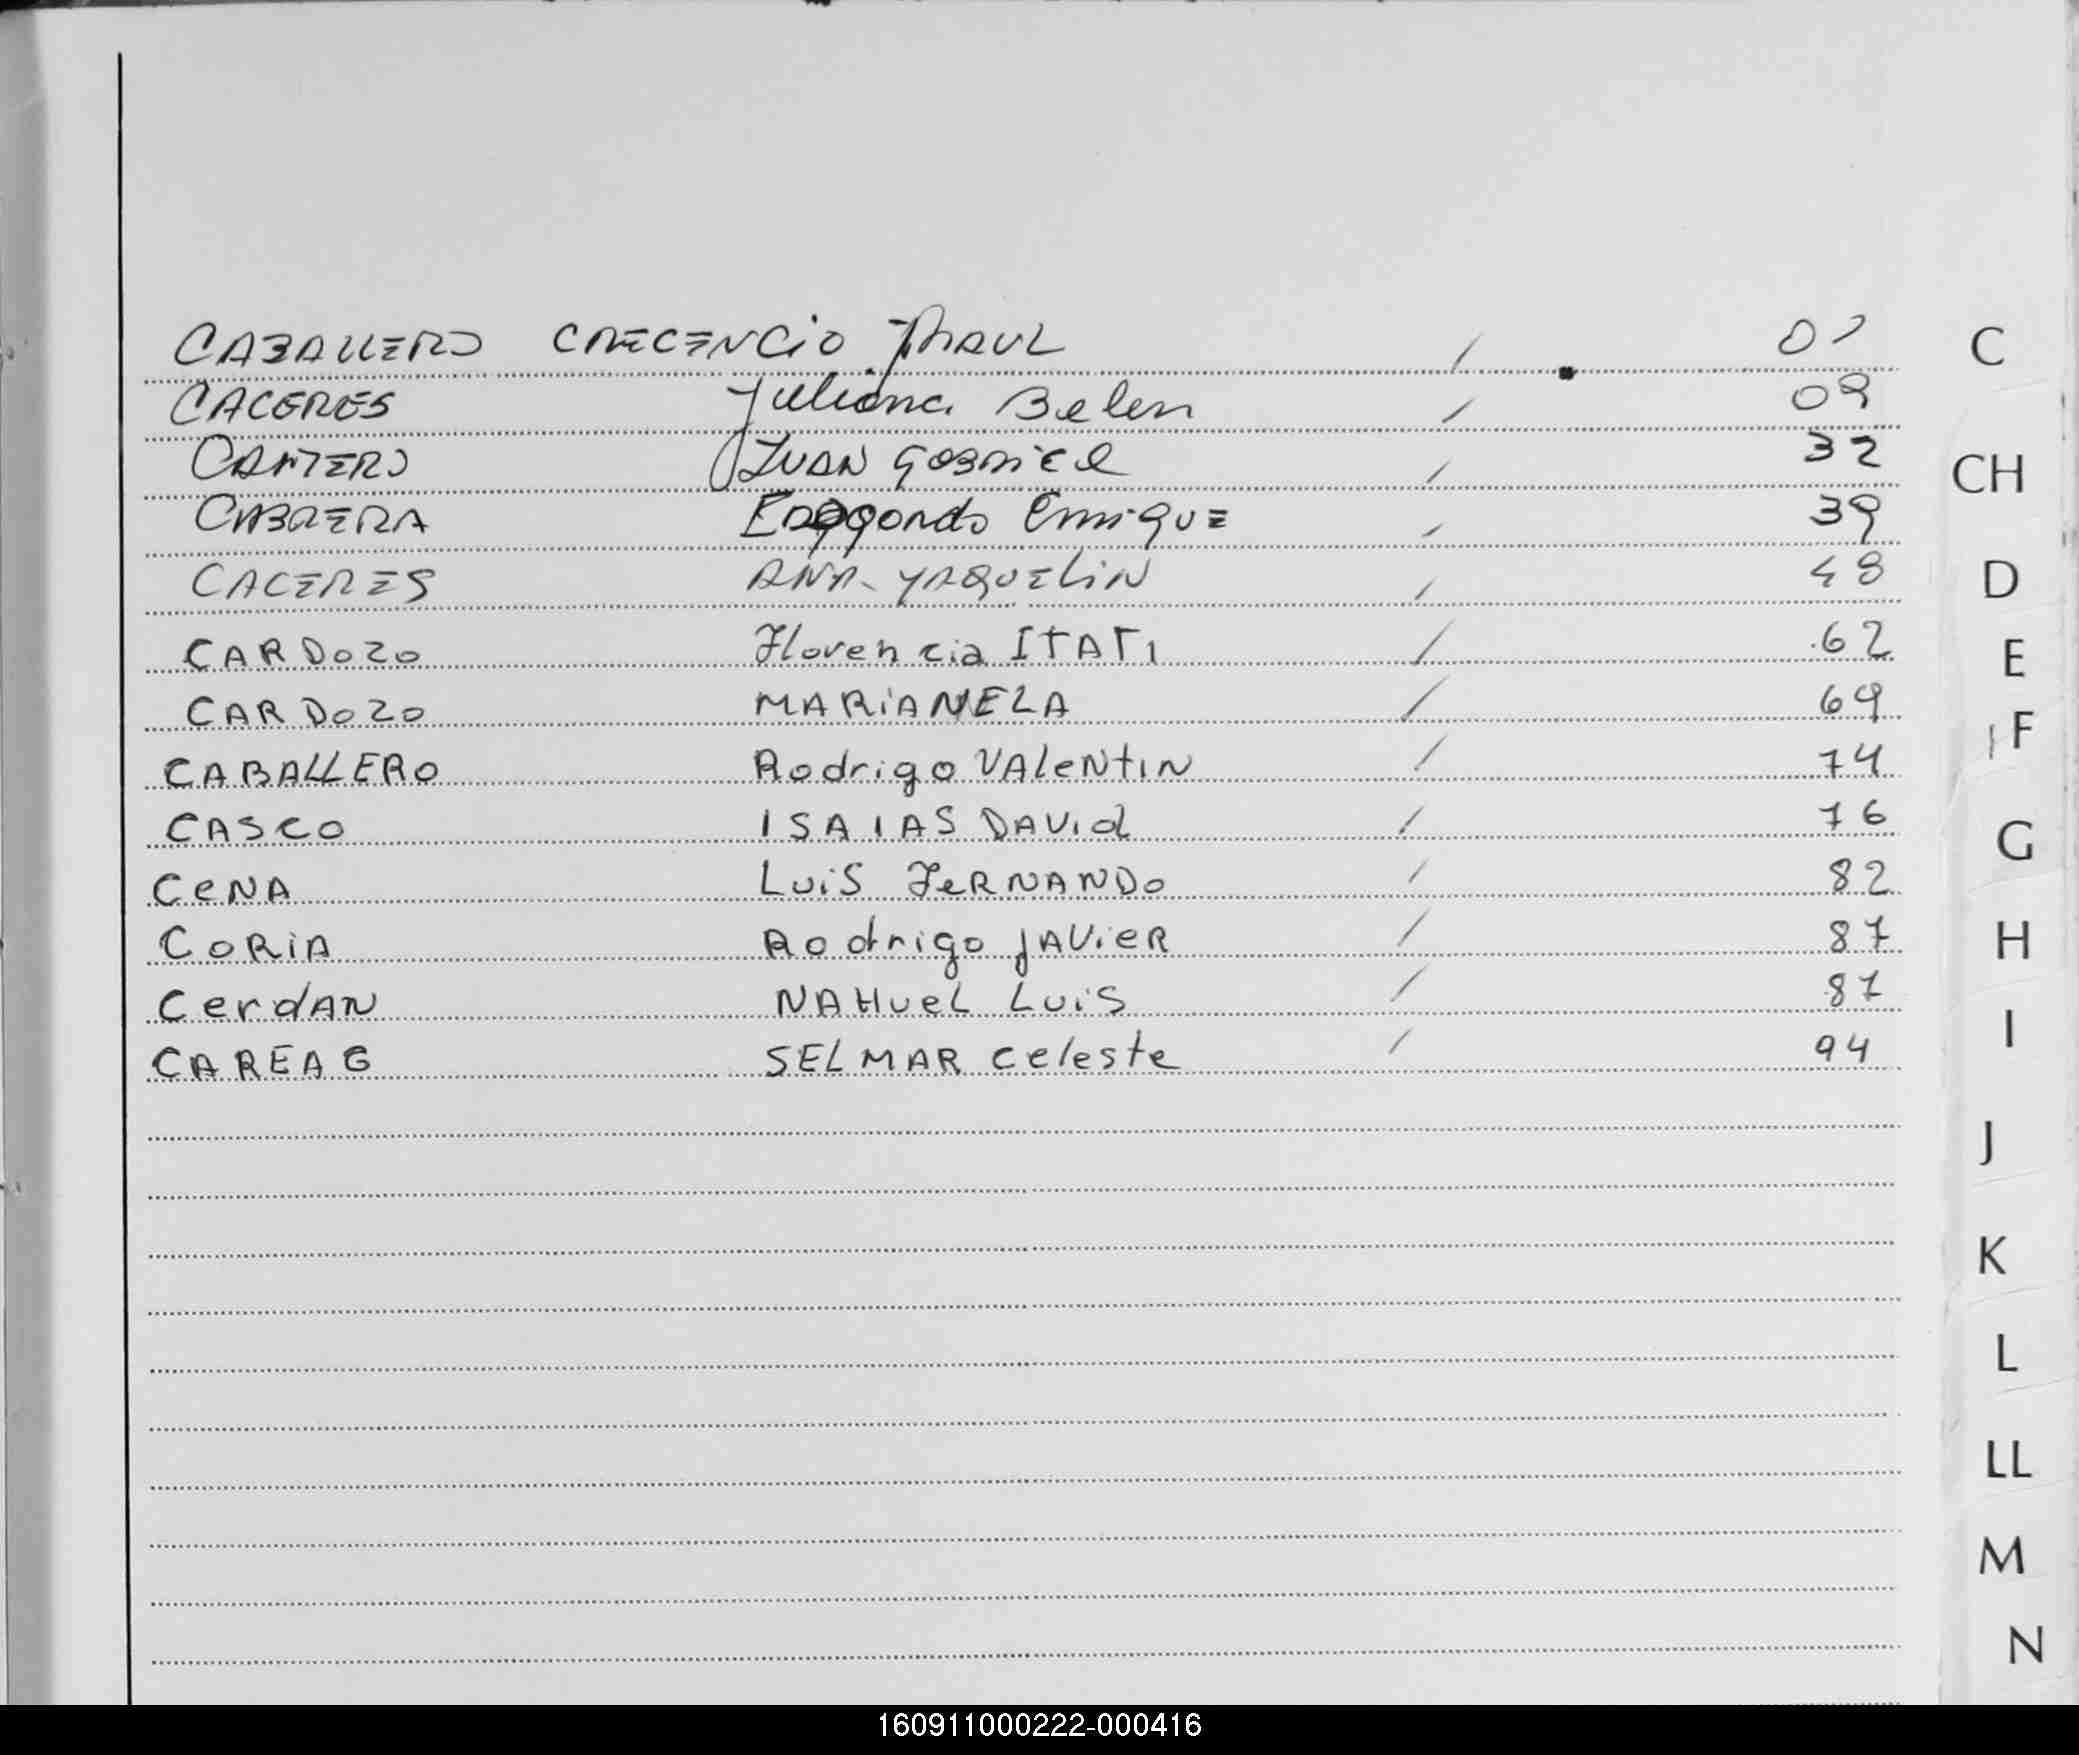 CABALLERO CRECENCIO RAUL / 01 C
CACERES Juliana Belen / 09
CANTERO JUAN GABRIEL / 32 CH
CABRERA Enrique / 39
CACERES ANA YAQUELIN / 48 D
CARDOZO Florencia ITATI / 62 E
CARDOZO MARIANELA / 69 F
CABALLERO Rodrigo VALENTIN / 74
CASCO ISAIAS DAVID / 76 G
CENA LUIS FERNANDO / 82
CORIA Rodrigo JAVIER / 87 H
CerdAN NAHUEL LUIS / 87 I
CAREAG SELMAR Celeste / 94
J
K
L
LL
M
N
160911000222-000416